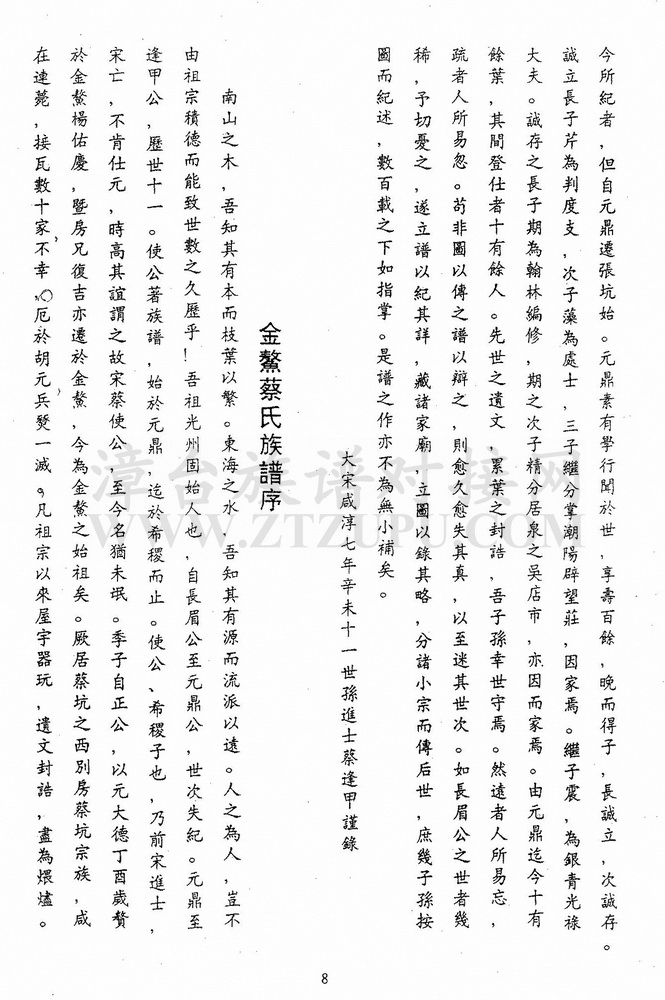 今所紀者，但自元鼎遷張坑始。元鼎素有學行聞於世，享壽百餘，晚而得子，長誠立，次誠存。
誠立長子芹為判度支，次子藻為處士，三子繼分掌潮陽辟望莊，因家焉。繼子震，為銀青光祿
大夫。誠存之長子期為翰林編修，期之次子精分居泉之吳店市，亦因而家焉。由元鼎迄今十有
餘葉，其間登仕者十有餘人。先世之遺文，累葉之封誥，吾子孫幸世守焉。然遠者人所易忘，
疏者人所易忽。苟非圖以傳之譜以辯之，則愈久愈失其真，以至迷其世次。如長眉公之世者幾
稀，予切憂之，遂立譜以紀其詳，藏諸家廟，立圖以錄其略，分諸小宗而傳后世，庶幾子孫按
圖而紀述，數百載之下如指掌。是譜之作亦不為無小補矣。
大宋咸淳七年辛未十一世孫進士蔡逢甲謹錄
金鰲蔡氏族譜序
南山之木，吾知其有本而枝葉以繁。東海之水，吾知其有源而流派以遠。人之為人，豈不
由祖宗積德而能致世數之久歷乎！吾祖光州固始人也，自長眉公至元鼎公，世次失紀。元鼎至
逢甲公，歷世十一。使公著族譜，始於元鼎，迄於希稷而止。使公、希稷子也，乃前宋進士，
宋亡，不肯仕元，時高其誼謂之故宋蔡使公，至今名猶未氓。季子自正公，以元大德丁酉歲贅
於金鰲楊佑慶，暨房兄復吉亦遷於金鰲，今為金鰲之始祖矣。厥居蔡坑之西別房蔡坑宗族，咸
在連甍，接瓦數十家不幸，厄於胡元兵燹一滅。凡祖宗以來屋宇器玩，遺文封誥，盡為煨燼。
8
漳台族谱对接网
WWW.ZTZUPU.COM